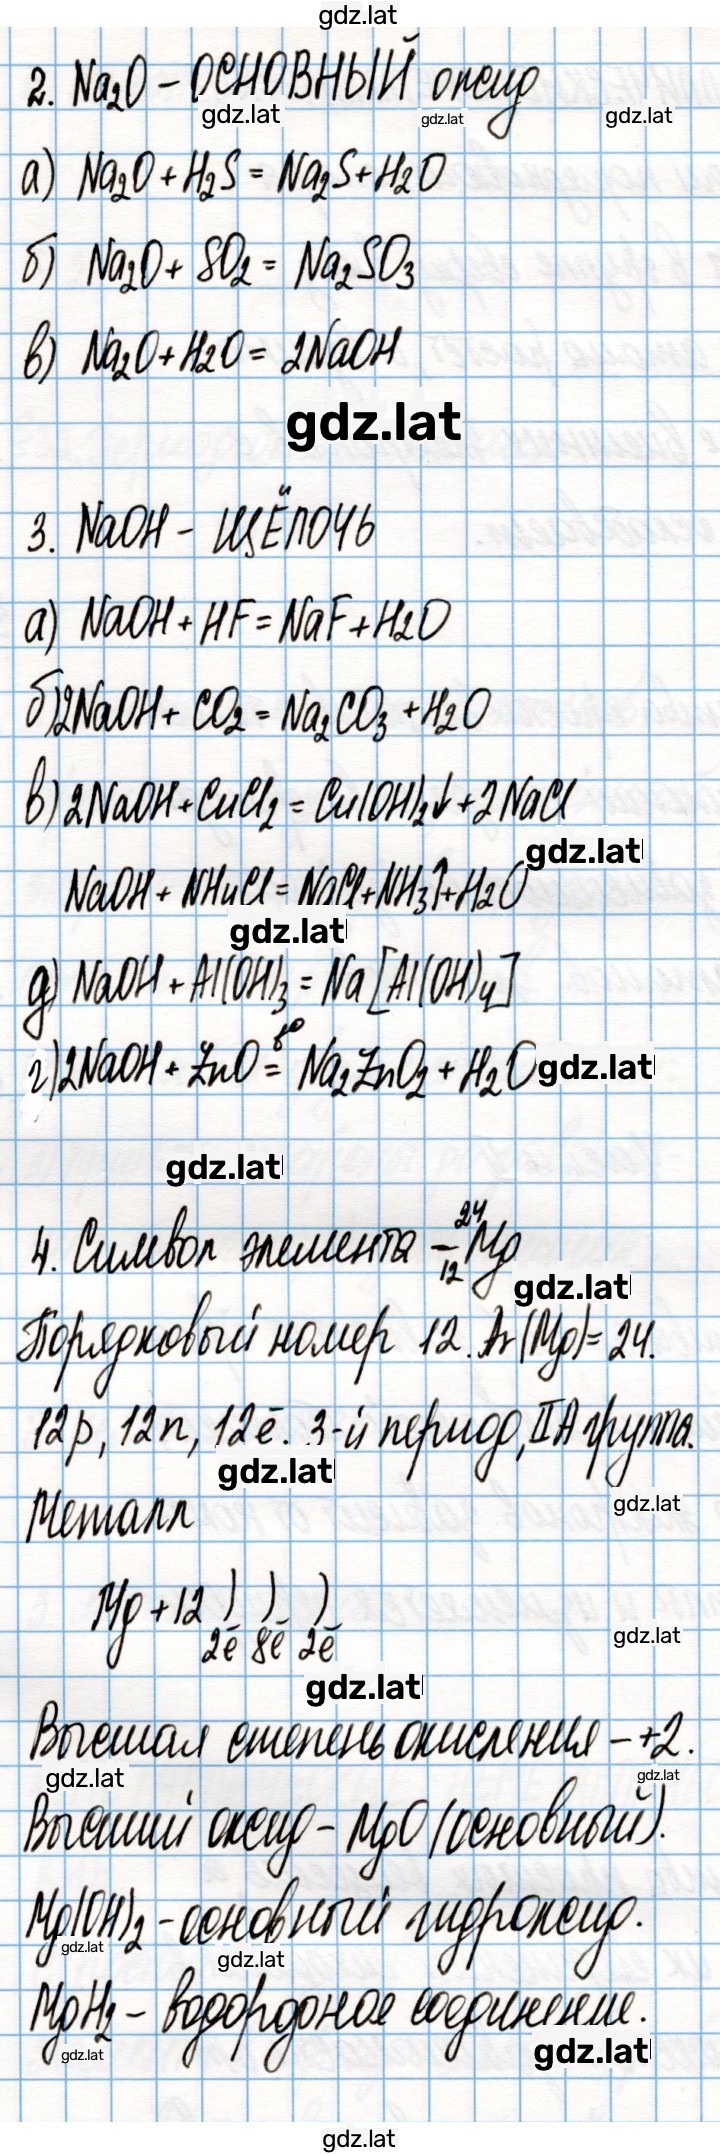 gdz.lat
2. Na₂O – ОСНОВНЫЙ оксид
gdz.lat gdz.lat gdz.lat
а) Na₂O + H₂S = Na₂S + H₂O
б) Na₂O + SO₂ = Na₂SO₃
в) Na₂O + H₂O = 2NaOH
gdz.lat
3. NaOH – ЩЁЛОЧЬ
а) NaOH + HF = NaF + H₂O
б) 2NaOH + CO₂ = Na₂CO₃ + H₂O
в) 2NaOH + CuCl₂ = Cu(OH)₂↓ + 2NaCl
gdz.lat
NaOH + NH₄Cl = NaCl + NH₃↑ + H₂O
gdz.lat
д) NaOH + Al(OH)₃ = Na[Al(OH)₄]
г) 2NaOH + ZnO =(t°) Na₂ZnO₂ + H₂O
gdz.lat
gdz.lat
4. Символ элемента – ²⁴₁₂Mg
gdz.lat
Порядковый номер 12. Ar(Mg) = 24.
12p, 12n, 12ē. 3-й период, IIA группа.
gdz.lat
gdz.lat
Металл
Mg +12 ) ) )
2ē 8ē 2ē
gdz.lat
gdz.lat
Высшая степень окисления – +2.
gdz.lat gdz.lat
Высший оксид – MgO (основный).
Mg(OH)₂ – основный гидроксид.
gdz.lat gdz.lat
MgH₂ – водородное соединение.
gdz.lat gdz.lat
gdz.lat